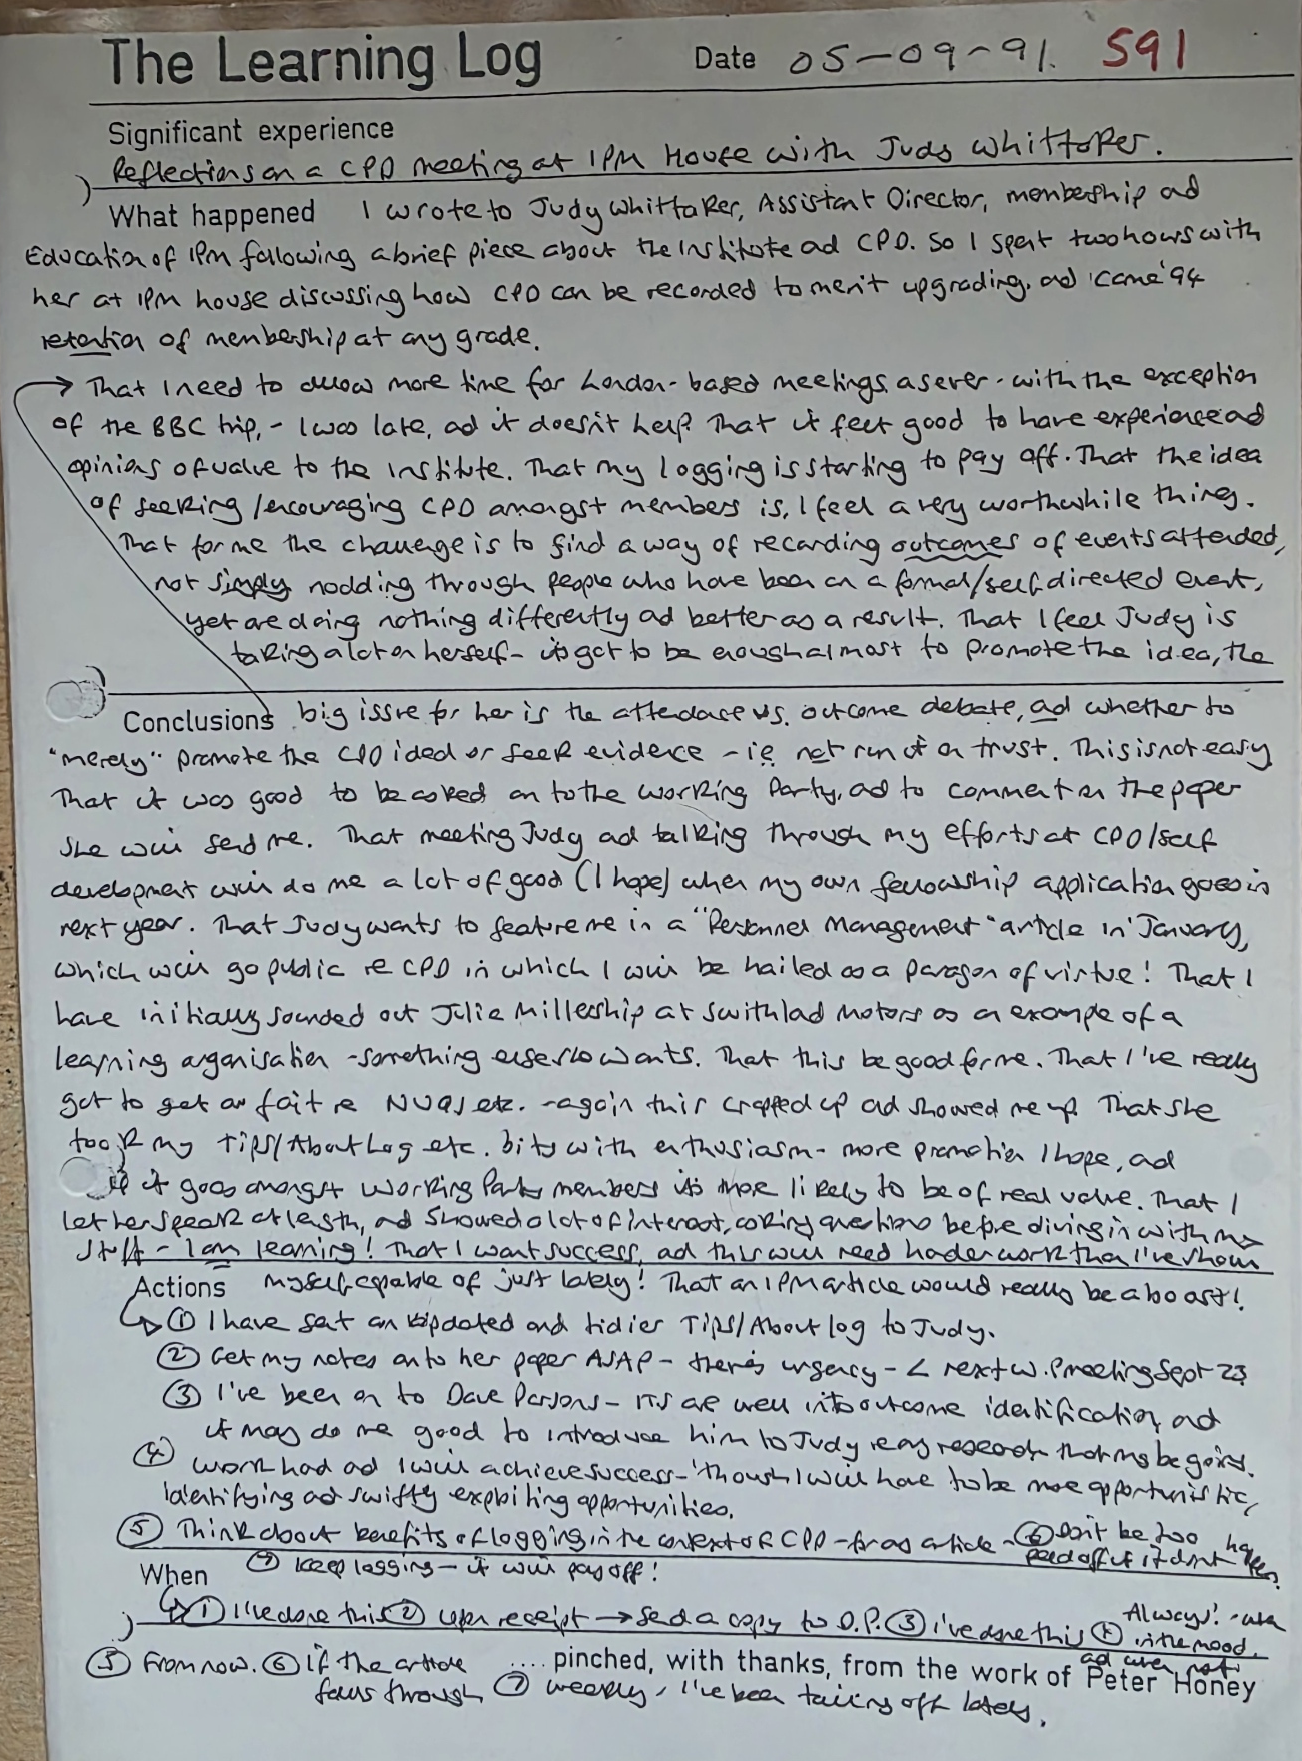 The Learning Log Date 05-09-91. 591
Significant experience
Reflections on a CPD meeting at IPM House with Judy Whittaker.
What happened I wrote to Judy Whittaker, Assistant Director, membership ad
Education of IPM following a brief piece about the Institute ad CPD. So I spent two hours with
her at IPM house discussing how CPD can be recorded to merit upgrading, ad 'come '94
retention of membership at any grade.
→ That I need to allow more time for London-based meetings as ever - with the exception
of the BBC trip, - I was late, ad it doesn't help. That it feels good to have experience ad
opinions of value to the Institute. That my logging is starting to pay off. That the idea
of seeking/encouraging CPD amongst members is, I feel a very worthwhile thing.
That for me the challenge is to find a way of recording outcomes of events attended,
not simply nodding through people who have been on a formal/self directed event,
yet are doing nothing differently ad better as a result. That I feel Judy is
taking a lot on herself - it's got to be enough almost to promote the idea, the
Conclusions big issue for her is the attendance vs. outcome debate, ad whether to
"merely" promote the CPD idea or seek evidence - ie not run it on trust. This is not easy
That it was good to be asked on to the working Party, ad to comment on the paper
she will send me. That meeting Judy ad talking through my efforts at CPD/self
development will do me a lot of good (I hope) when my own fellowship application goes in
next year. That Judy wants to feature me in a "Personnel Management" article in January,
which will go public re CPD in which I will be hailed as a paragon of virtue! That I
have initially sounded out Julie Millership at Swithlad Motors as an example of a
learning organisation - something else she wants. That this be good for me. That I've really
got to get au fait re NVQs etc. - again this cropped up ad showed me up. That she
took my Tips/About Log etc. bits with enthusiasm - more promotion I hope, ad
if it goes amongst Working Party members it's more likely to be of real value. That I
let her speak at length, ad showed a lot of interest, asking questions before diving in with my
stuff - I am learning! That I want success, ad this will need harder work than I've shown
Actions myself capable of just lately! That an IPM article would really be a boost!
① I have sent an updated and tidier Tips/About log to Judy.
② Get my notes on to her paper ASAP - there's urgency - < next W.P meeting Sept 23
③ I've been on to Dave Parsons - ITS are well into outcome identification, ad
it may do me good to introduce him to Judy re any research that may be going.
④ Work hard ad I will achieve success - 'though I will have to be more opportunistic,
identifying ad swiftly exploiting opportunities.
⑤ Think about benefits of logging in the context of CPD - for an article - ⑥ Don't be too
peed off if it don't happen.
When ⑦ Keep logging - it will pay off!
① I've done this ② upon receipt → send a copy to D.P. ③ I've done this ④ Always! - when
in the mood,
ad when not
⑤ From now. ⑥ if the article .... pinched, with thanks, from the work of Peter Honey
falls through ⑦ weekly, I've been tailing off lately.